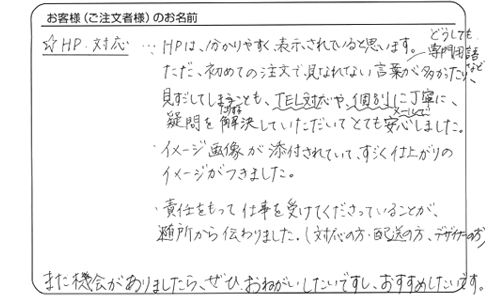 お客様(ご注文者様)のお名前
☆HP・対応 … HPは、分かりやすく表示されていると思います。
どうしても
専門用語など
ただ、初めての注文で、見なれない言葉が多かったり、
見すごしてしまうことも、TEL対応や、個別に丁寧に、
メールで
疑問を解決していただいてとても安心しました。
・イメージ画像が添付されていて、すごく仕上がりの
イメージがつきました。
・責任をもって仕事を受けてくださっていることが、
随所から伝わりました。(対応の方・配送の方、デザイナーの方)
また機会がありましたら、ぜひ、おねがいしたいですし、おすすめしたいです。